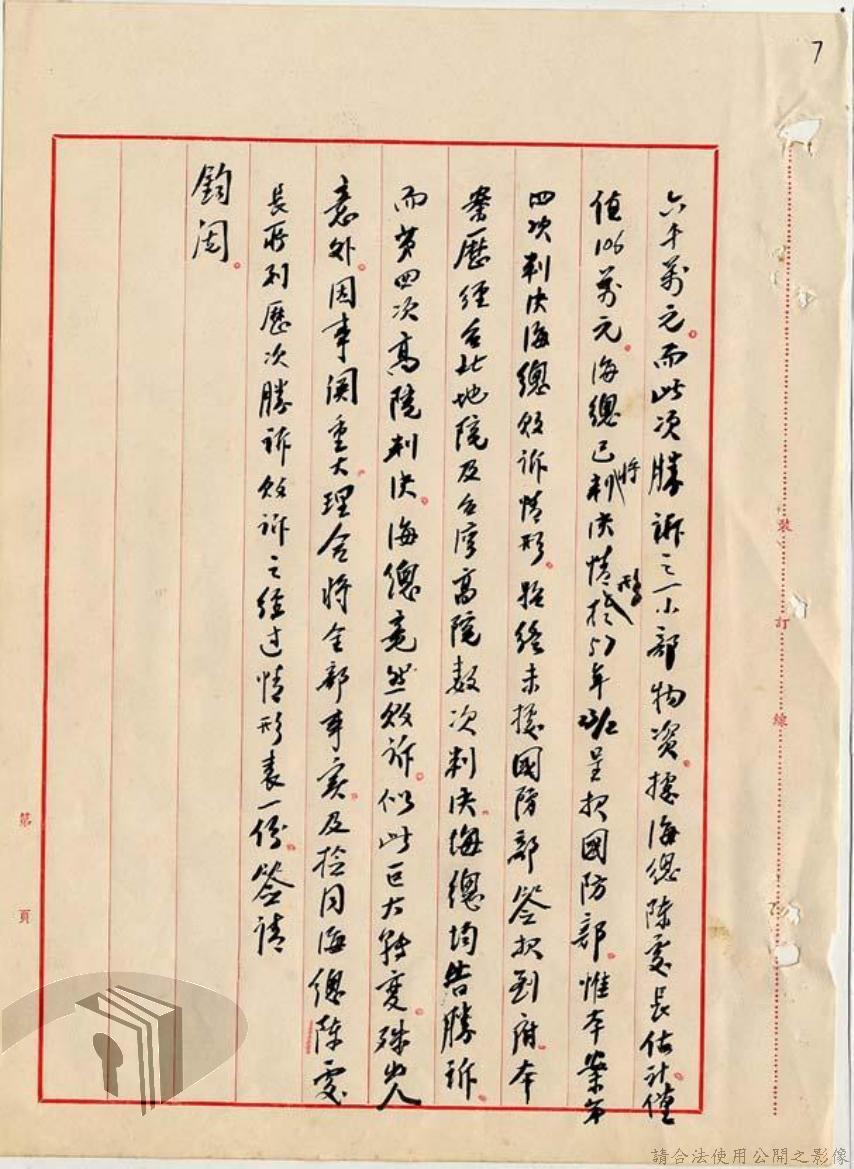 7
六千萬元。而此次勝訴之一小部物資。據海總陳處長估計。僅
值106萬元。海總已將判決情形於57年23/2呈報國防部。惟本案第
四次判決海總敗訴情形。始終未據國防部簽報到府。本
案歷經台北地院及台灣高院數次判決。海總均告勝訴。
而第四次高院判決。海總竟然敗訴。似此巨大轉變。殊出人
意外。因事關重大。理合將全部事實。及檢同海總陳處
長所列歷次勝訴敗訴之經過情形表一份。簽請
鈞閱。
裝訂線
第 頁
請合法使用公開之影像